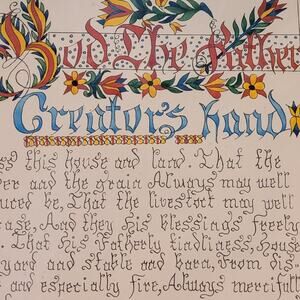 God The Father
Creator's hand
ess this house and land. That the
er and the grain Always may well
uced be, That the livestock may well
ease, And they his blessings Freely
. That his Fatherly kindliness, House
yard and stable and barn, From dis-
and especially fire, Always mercifully